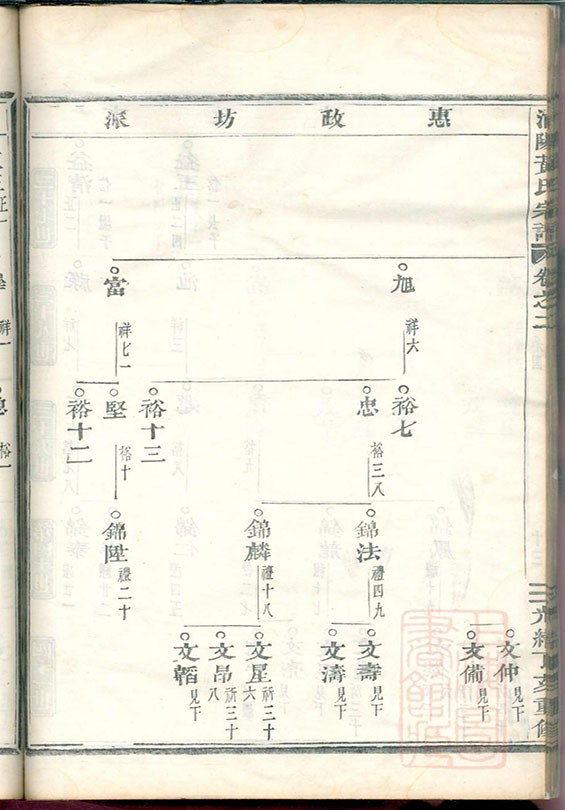 黃氏宗譜
卷之二
光緒丁亥重修
惠政坊派
旭
祥六
富
祥七一
裕七
忠
裕三八
裕十三
堅
裕十
裕十二
錦法
禮四九
錦麟
禮十八
錦陞
禮二十
文仲
見下
文備
見下
文壽
見下
文濤
見下
文星
祈三十六
文昂
祈三十八
文韜
見下